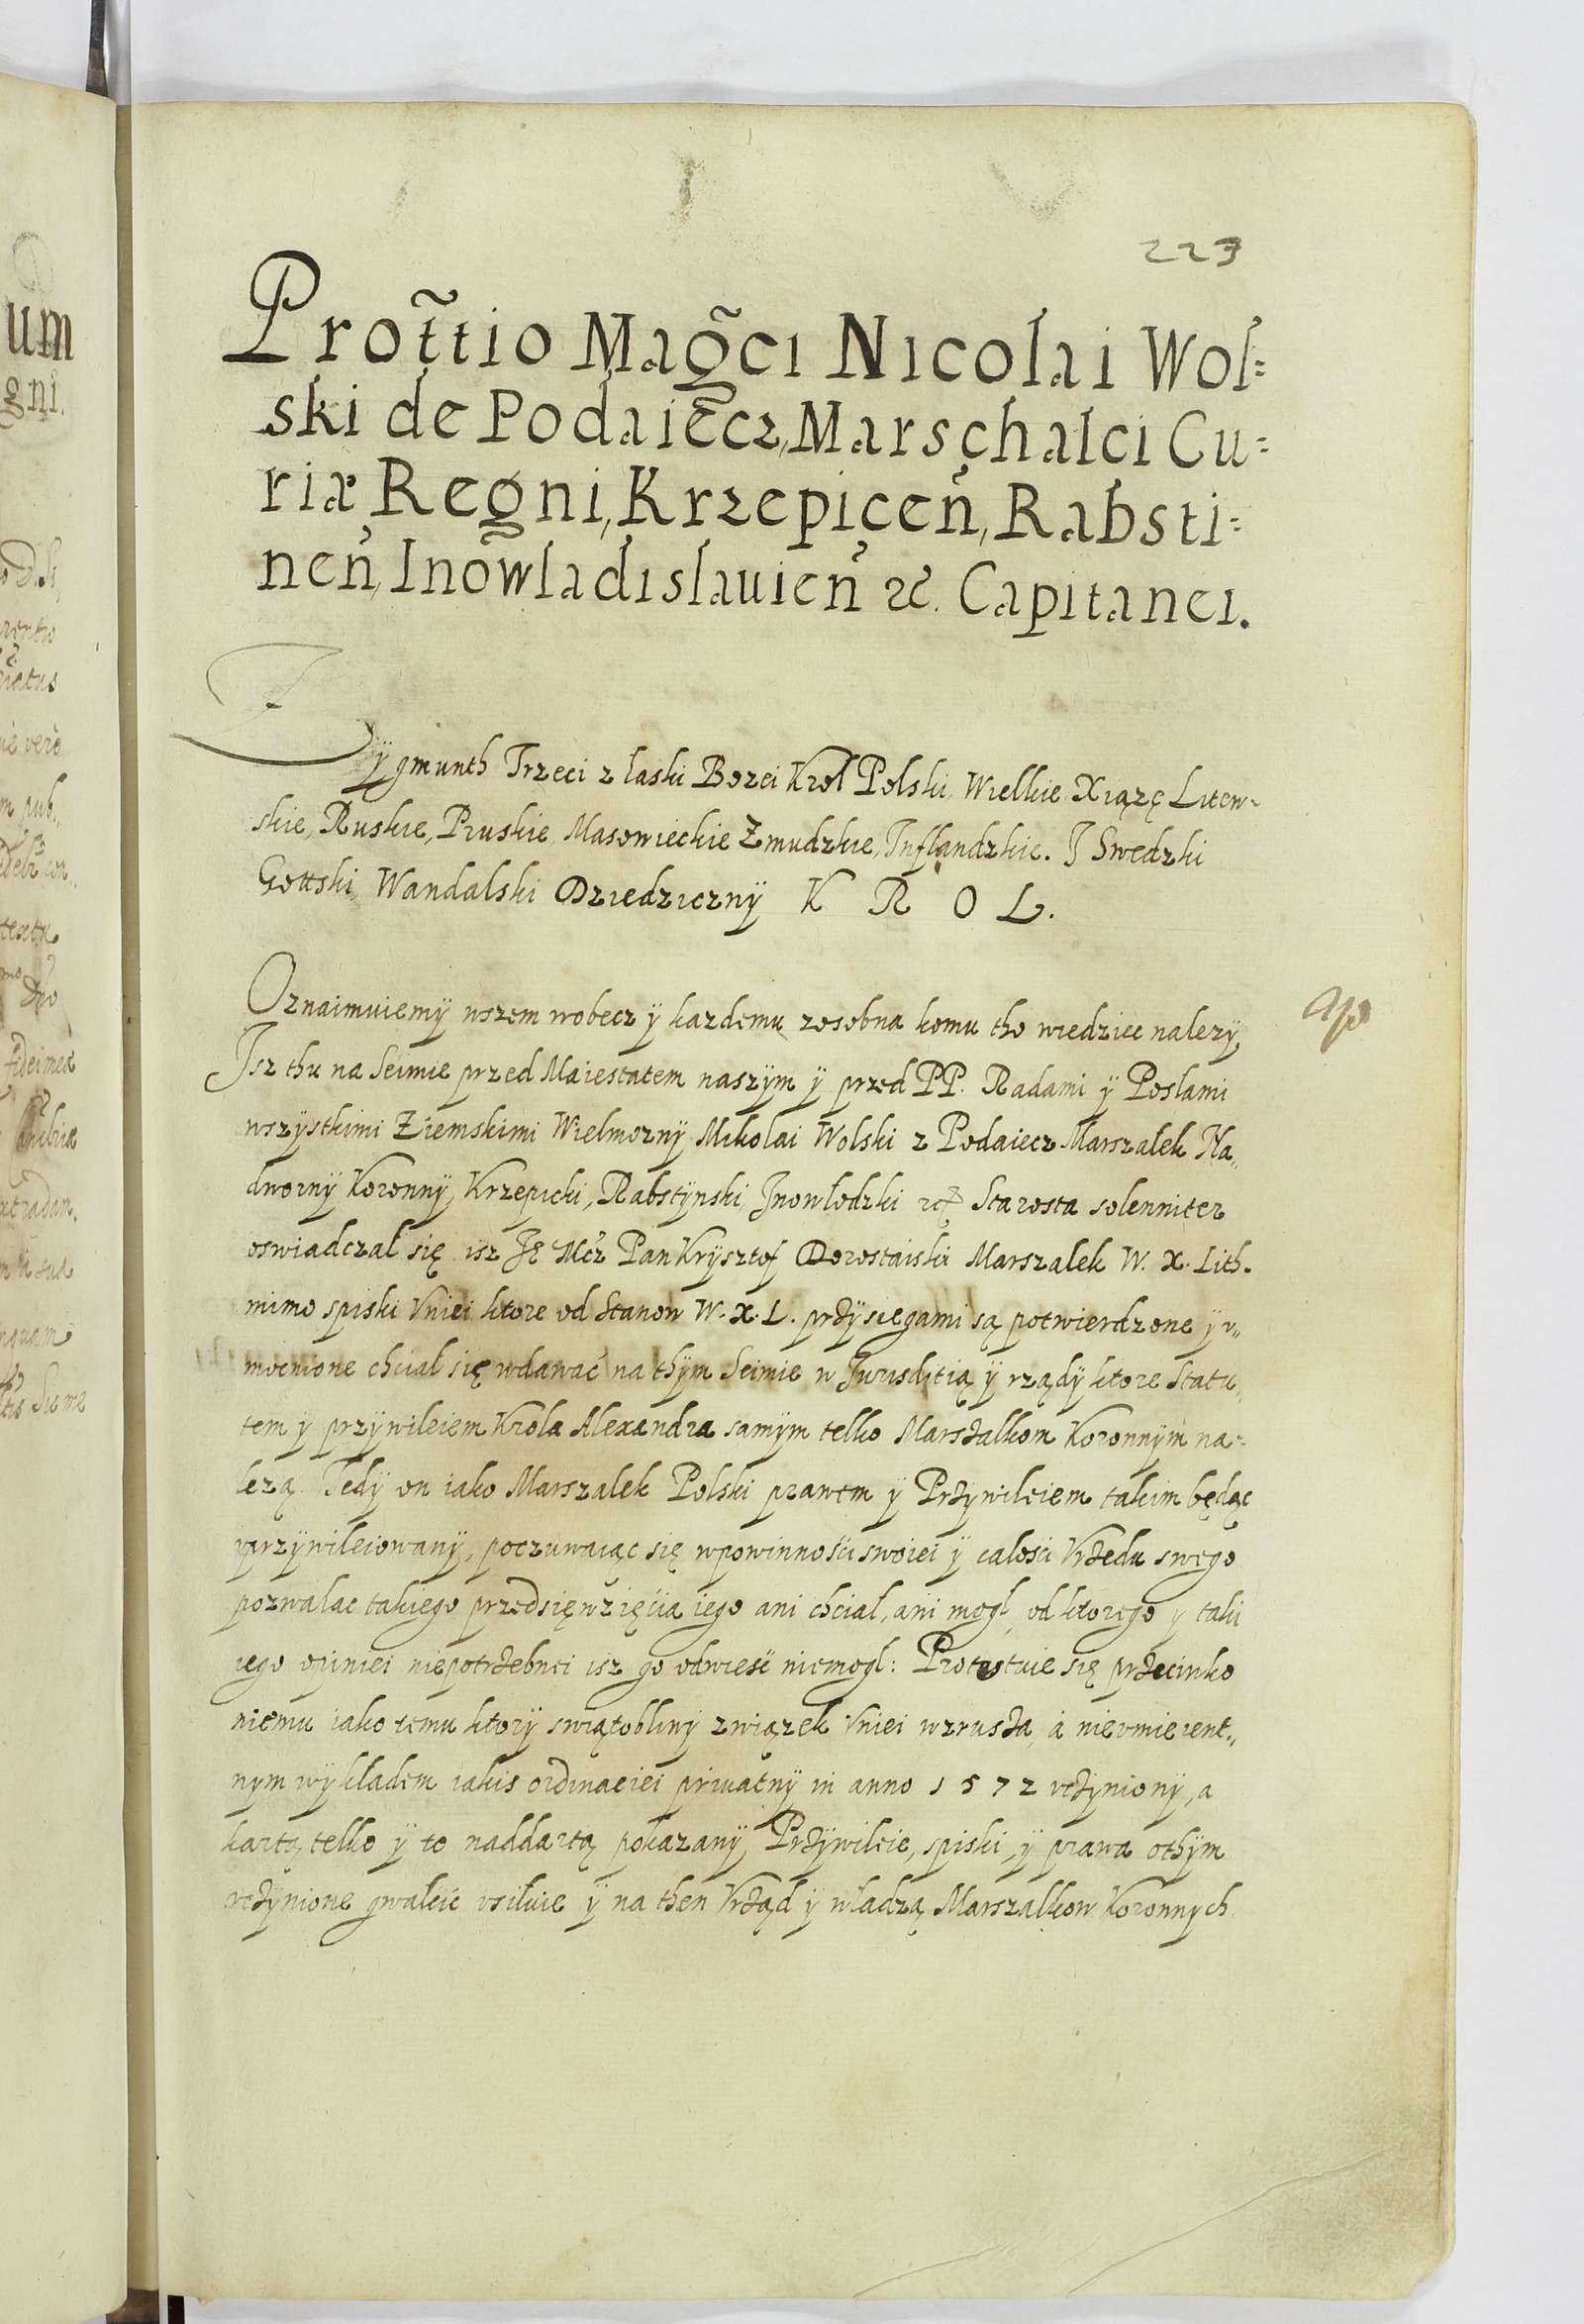 223
Prot̃tio Mag̃ci Nicolai Wol=
ski de Podaiecz, Marschalci Cu=
riæ Regni, Krzepiceñ, Rabsti=
neñ, Inowladislauieñ &c. Capitanei.
Zÿgmunth Trzeci z laski Bozei Krol Polski, Wielkie Xiązę Litew-
skie, Ruskie, Pruskie, Masowieckie Zmudzkie, Inflandzkie. I Swedzki
Gottski, Wandalski Dziedzicznÿ K R O L.
Oznaimuiemÿ wszem wobecz ÿ kazdemu zosobna komu tho wiedziec nalezÿ,
Isz thu na Seimie przed Maiestatem naszÿm ÿ przed PP. Radami ÿ Poslami
wszÿstkimi Ziemskimi Wielmoznÿ Mikolai Wolski z Podaiecz Marszalek Na„
dwornÿ Koronnÿ, Krzepicki, Rabstÿnski, Inowlodzki &c Starosta solenniter
oswiadczal się isz Je Mcz Pan Krÿsztof Dorostaiski Marszalek W. X. Lith.
mimo spiski Vniei ktore od Stanow W. X. L. przÿsiegami są potwierdzone ÿ v„
mocnione chcial się wdawać na thÿm Seimie w Jurisditią ÿ rządÿ ktore Statu„
tem ÿ przÿwileiem Krola Alexandra samÿm telko Marszalkom Koronnÿm na=
lezą. Tedÿ on iako Marszalek Polski prawem ÿ Przÿwileiem takim będąc
vprzÿwileiowanÿ, poczuwaiąc się wpowinnosci swoiei ÿ calosci Vrzedu swego
pozwalac takiego przedsięwzięcia iego ani chcial, ani mogl, od ktorego ÿ taki
iego opiniei niepotrzebnei isz go odwiesć niemogl: Protestuie się przeciwko
niemu iako temu ktorÿ swiątobliwÿ związek Vniei wzrusza, a nievmieient„
nym wÿkladem iakis ordinaciei priuatnÿ in anno 1572 vczÿnionÿ, a
kartą telko ÿ to naddartą pokazanÿ, Przÿwileie, spiski, ÿ prawa othÿm
vczÿnione gwalcic vsiluie ÿ na then Vrząd ÿ wladzą Marszalkow Koronnych